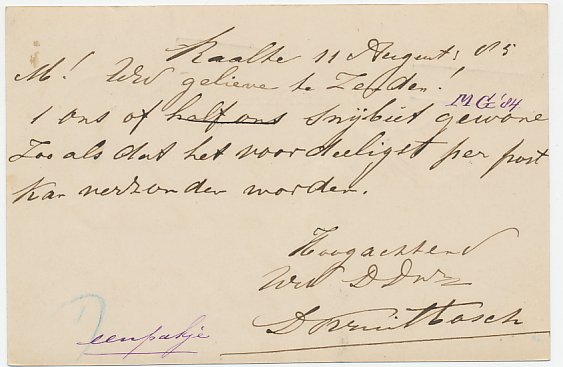 Raalte 11 August: 85
M! Wed gelieve te Zenden!
MG '84
1 ons of half ons Snijbiet gewone
Zoo als dat het voordeeligst per post
kan verzonden worden.
Hoogachtend
Wed D Dw
D Kruitbosch
een pakje